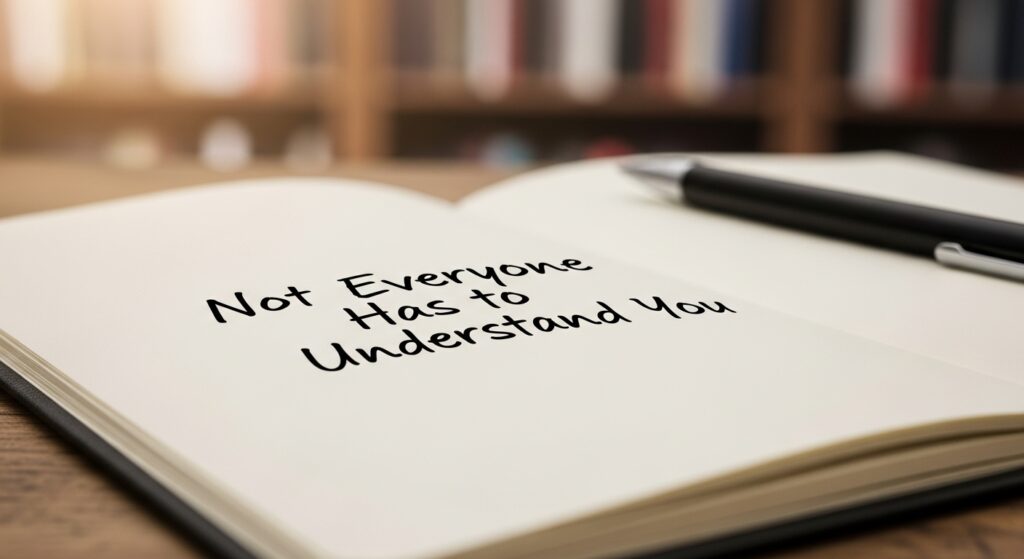 Not Everyone
Has to
Understand You